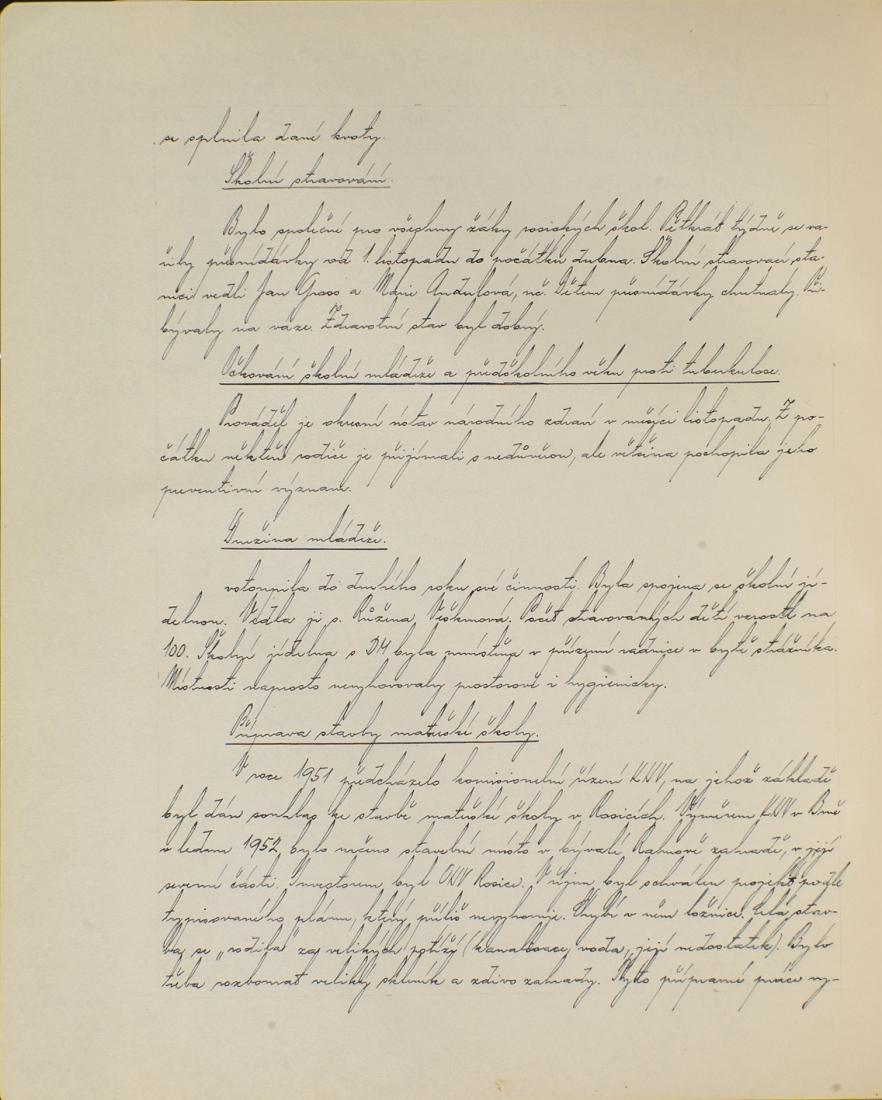 se splnila dané kvoty.
Školní stravování.
Bylo společné pro všechny žáky rosických škol. Pětkrát týdně se va-
řily přesnídávky od 1. listopadu do počátku dubna. Školní stravovací sta-
nici vedli Jan Gross a Marie Andulová, uč. Dětem přesnídávky chutnaly. Při-
bývaly na váze. Zdravotní stav byl dobrý.
Očkování školní mládeže a předškolního věku proti tuberkulose.
Prováděl je okresní ústav národního zdraví v měsíci listopadu. Z po-
čátku někteří rodiče je přijímali s nedůvěrou, ale většina pochopila jeho
preventivní význam.
Družina mládeže.
vstoupila do druhého roku své činnosti. Byla spojena se školní jí-
delnou. Vedla ji s. Růžena Počet stravovaných dětí verostl na
100. Školní jídelna s DM byla umístěna v přízemí radnice v bytě strážníka.
Místnosti naprosto nevyhovovaly prostorově i hygienicky.
Příprava stavby mateřské školy.
V roce 1951 předcházelo komisionelní řízení KNV, na jehož základě
byl dán souhlas ke stavbě mateřské školy v Rosicích. Výměrem KNV v Brně
v lednu 1952, bylo určeno stavební místo v bývalé zahradě, v její
severní části. Investorem byl ONV Rosice. V říjnu byl schválen projekt podle
typisovaného plánu, který příliš nevyhovuje. Chybí v něm ložnice. Celá stav-
ba se „rodila“ za velikých potíží (kanalisace, voda, její nedostatek). Bylo
třeba rozbourat veliký skleník a zdivo zahrady. Tyto přípravné práce vy-